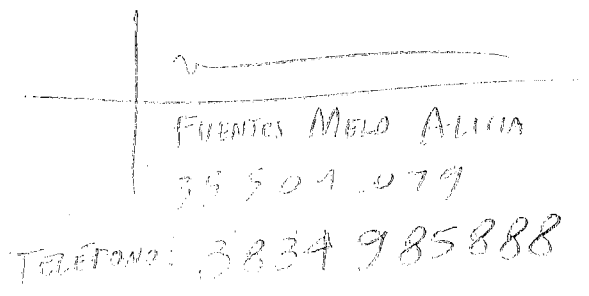 FUENTES MELO ALICIA
35 501.079
TELÉFONO: 3834 985888